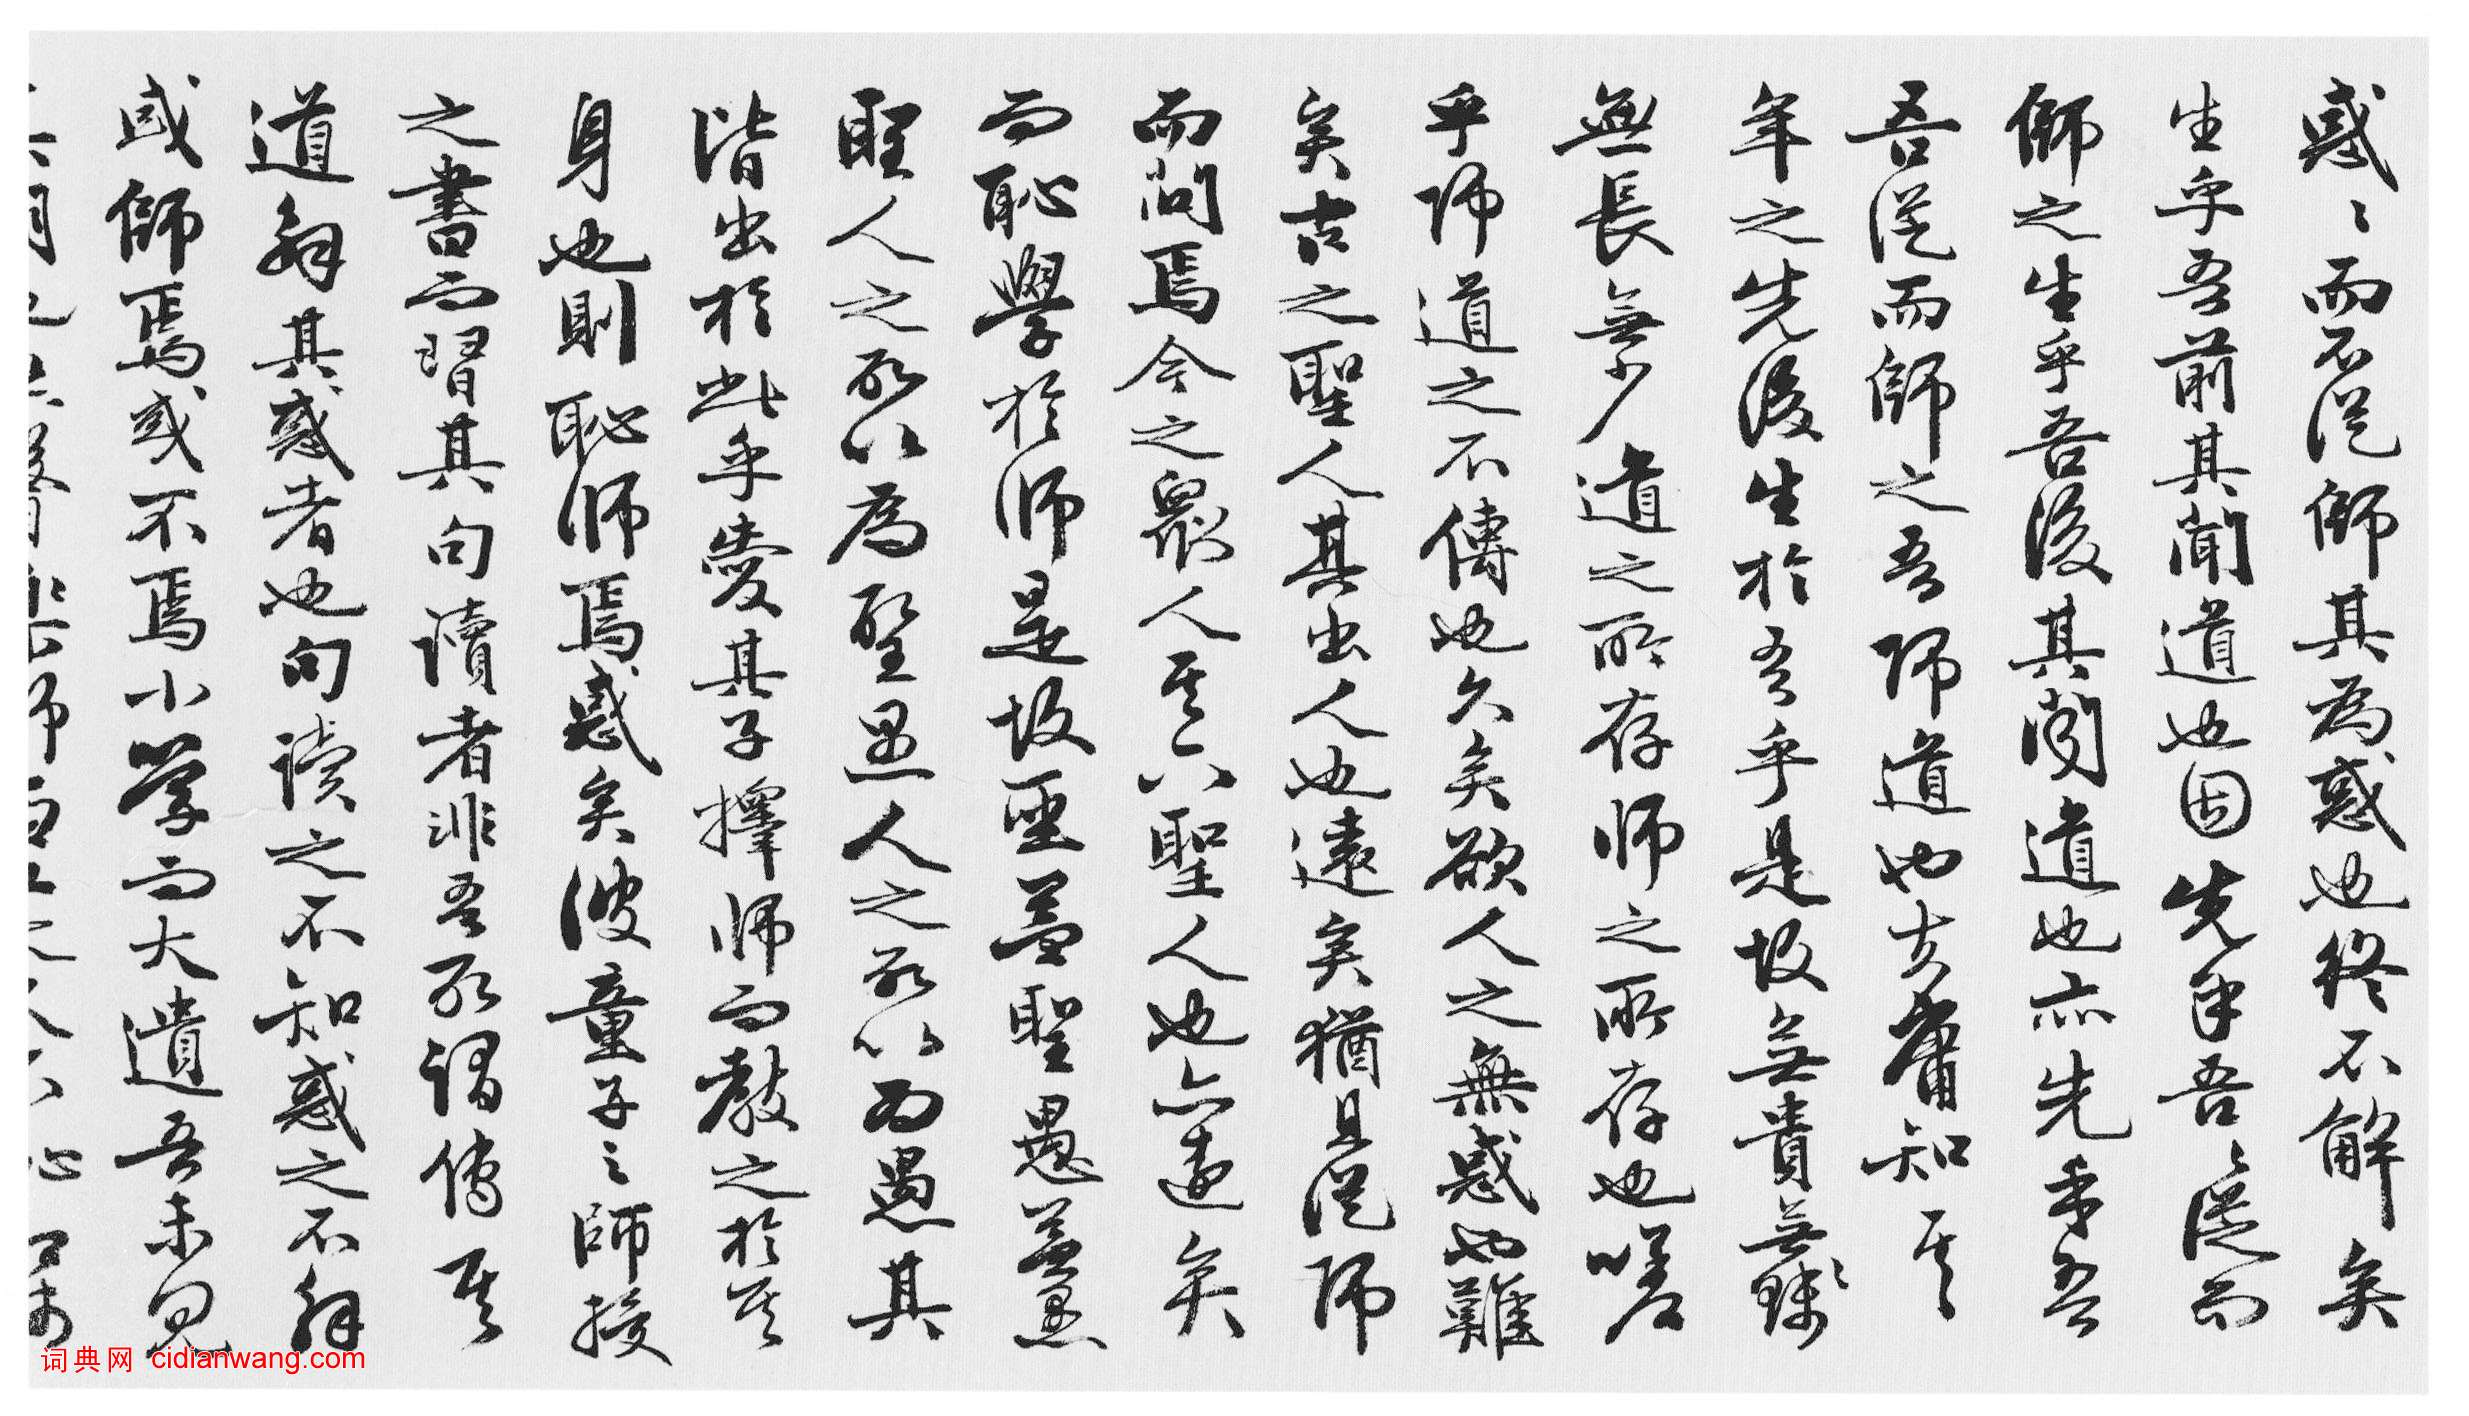 惑〻而不從師其為惑也終不解矣
生乎吾前其聞道也固先乎吾〻從而
師之生乎吾後其聞道也亦先乎吾
吾從而師之吾師道也夫庸知其
年之先後生於吾乎是故無貴無賤
無長無少道之所存師之所存也嗟
乎師道之不傳也久矣欲人之無惑也難
矣古之聖人其出人也遠矣猶且從師
而問焉今之眾人其下聖人也亦遠矣
而恥學於師是故聖益聖愚益愚
聖人之所以為聖愚人之所以為愚其
皆出於此乎愛其子擇師而教之於其
身也則恥師焉惑矣彼童子之師授
之書而習其句讀者非吾所謂傳其
道解其惑者也句讀之不知惑之不解
或師焉或不焉小學而大遺吾未見
其明也巫醫樂師百工之人不恥相師
词典网 cidianwang.com